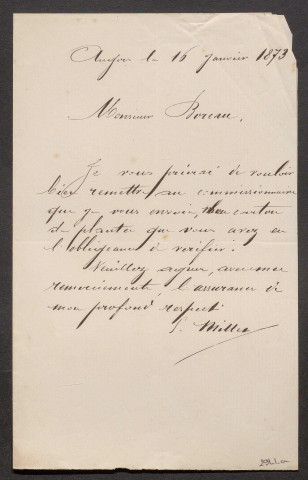 Angers le 16 Janvier 1873
Monsieur Boreau,
Je vous prierai de vouloir
bien remettre au commissionnaire
que je vous envoie, carton
de plantes que vous avez eu
l'obligeance de vérifier.
Veuillez agréer, avec mes
remerciements l'assurance de
mon profond respect
Millet